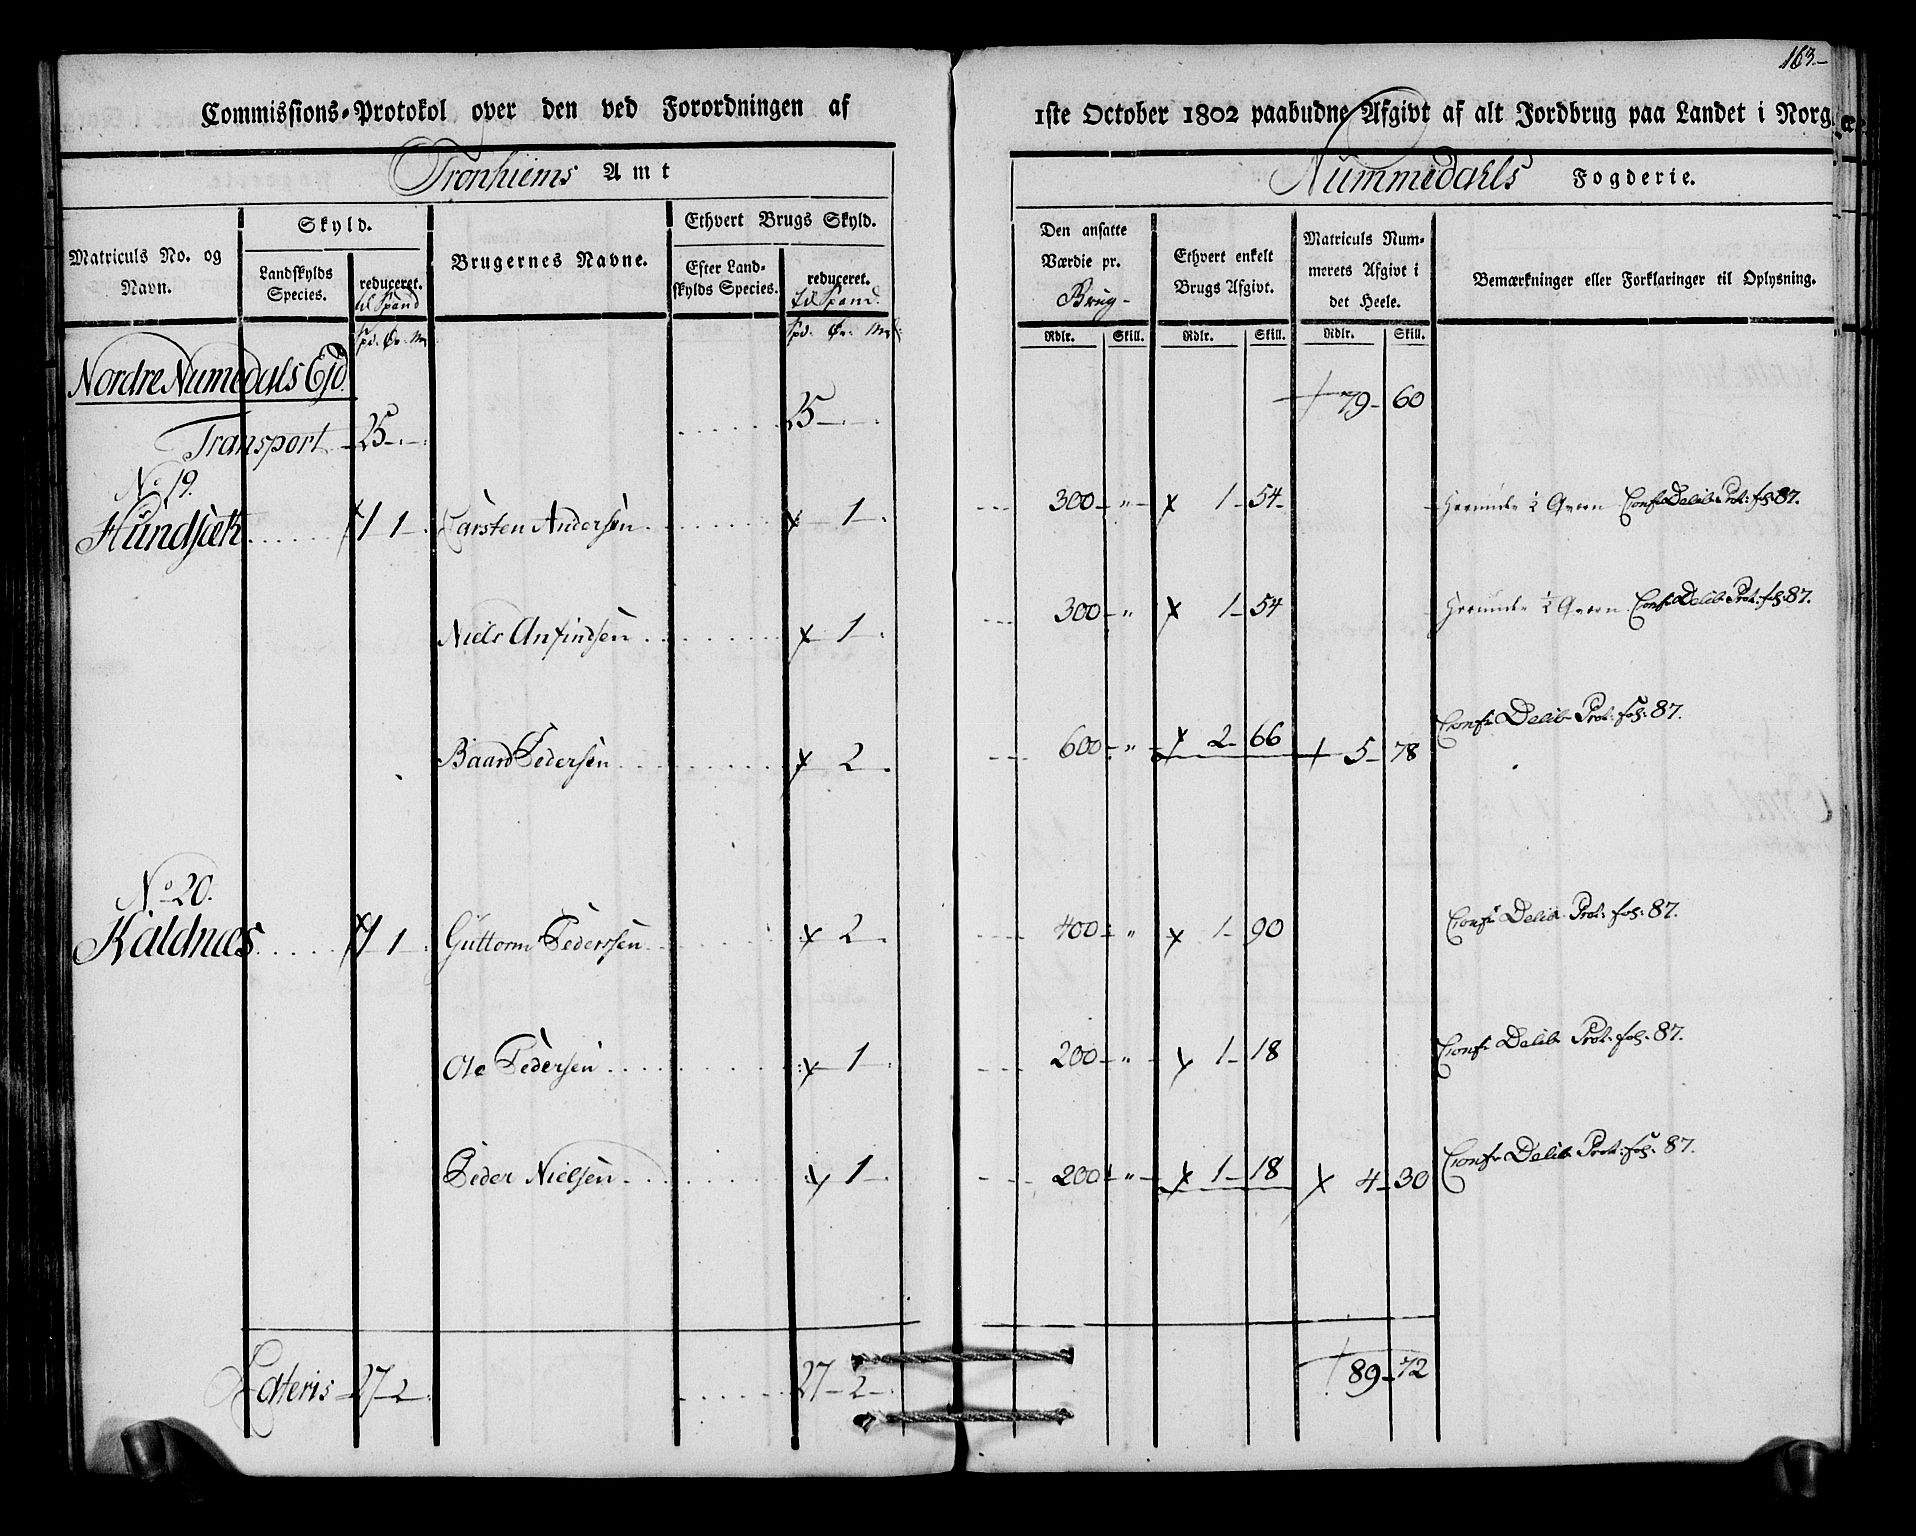 163.-
Commissions-Protokol over den ved Forordningen af 1ste October 1802 paabudne Afgivt af alt Jordbrug paa Landet i Norge.
Tronhiems Amt
Nummedahls Fogderie.
Matriculs No. og Navn.
Skyld.
Landskylds Species.
reduceret. til Spand
Brugernes Navne.
Ethvert Brugs Skyld.
Efter Landskylds Species.
reduceret. til Spand.
Den ansatte Værdie pr. Brug-
Ethvert enkelt Brugs Afgivt.
Matriculs Nummerets Afgivt i det Heele.
Bemærkninger eller Forklaringer til Oplysning.
Spd. Ør. Mk
Spd. Ør. Mk
Rdlr. Skill. Rdlr. Skill. Rdlr. Skill.
Nordre Numedals Ejd.
Transport 25 - . - . 25 - . - . 79 - 60
No. 19.
Hundsæt 1 1 - . Carsten Andersen 1 - . 300 - " - 1 - 54 - Conf. Delib. Prot: fol: 87.
Niels Anfindsen 1 - . 300 - " 1 - 54 Conf. Delib. Prot: fol: 87.
Baard Pedersen 2 - . 600 - " - 2 - 66 5 - 78 Conf. Delib. Prot: fol: 87.
No. 20.
Kaldnæs 1 1 - . Guttorm Pedersen 2 - . 400 - " 1 - 90 Conf. Delib. Prot: fol: 87.
Ole Pedersen 1 - . 200 - " - 1 - 18 Conf. Delib. Prot: fol: 87.
Peder Nielsen 1 - . 200 - " - 1 - 18 4 - 30 Conf. Delib. Prot: fol: 87.
Lateris 27 - 2 - . 27 - 2 - . 89 - 72